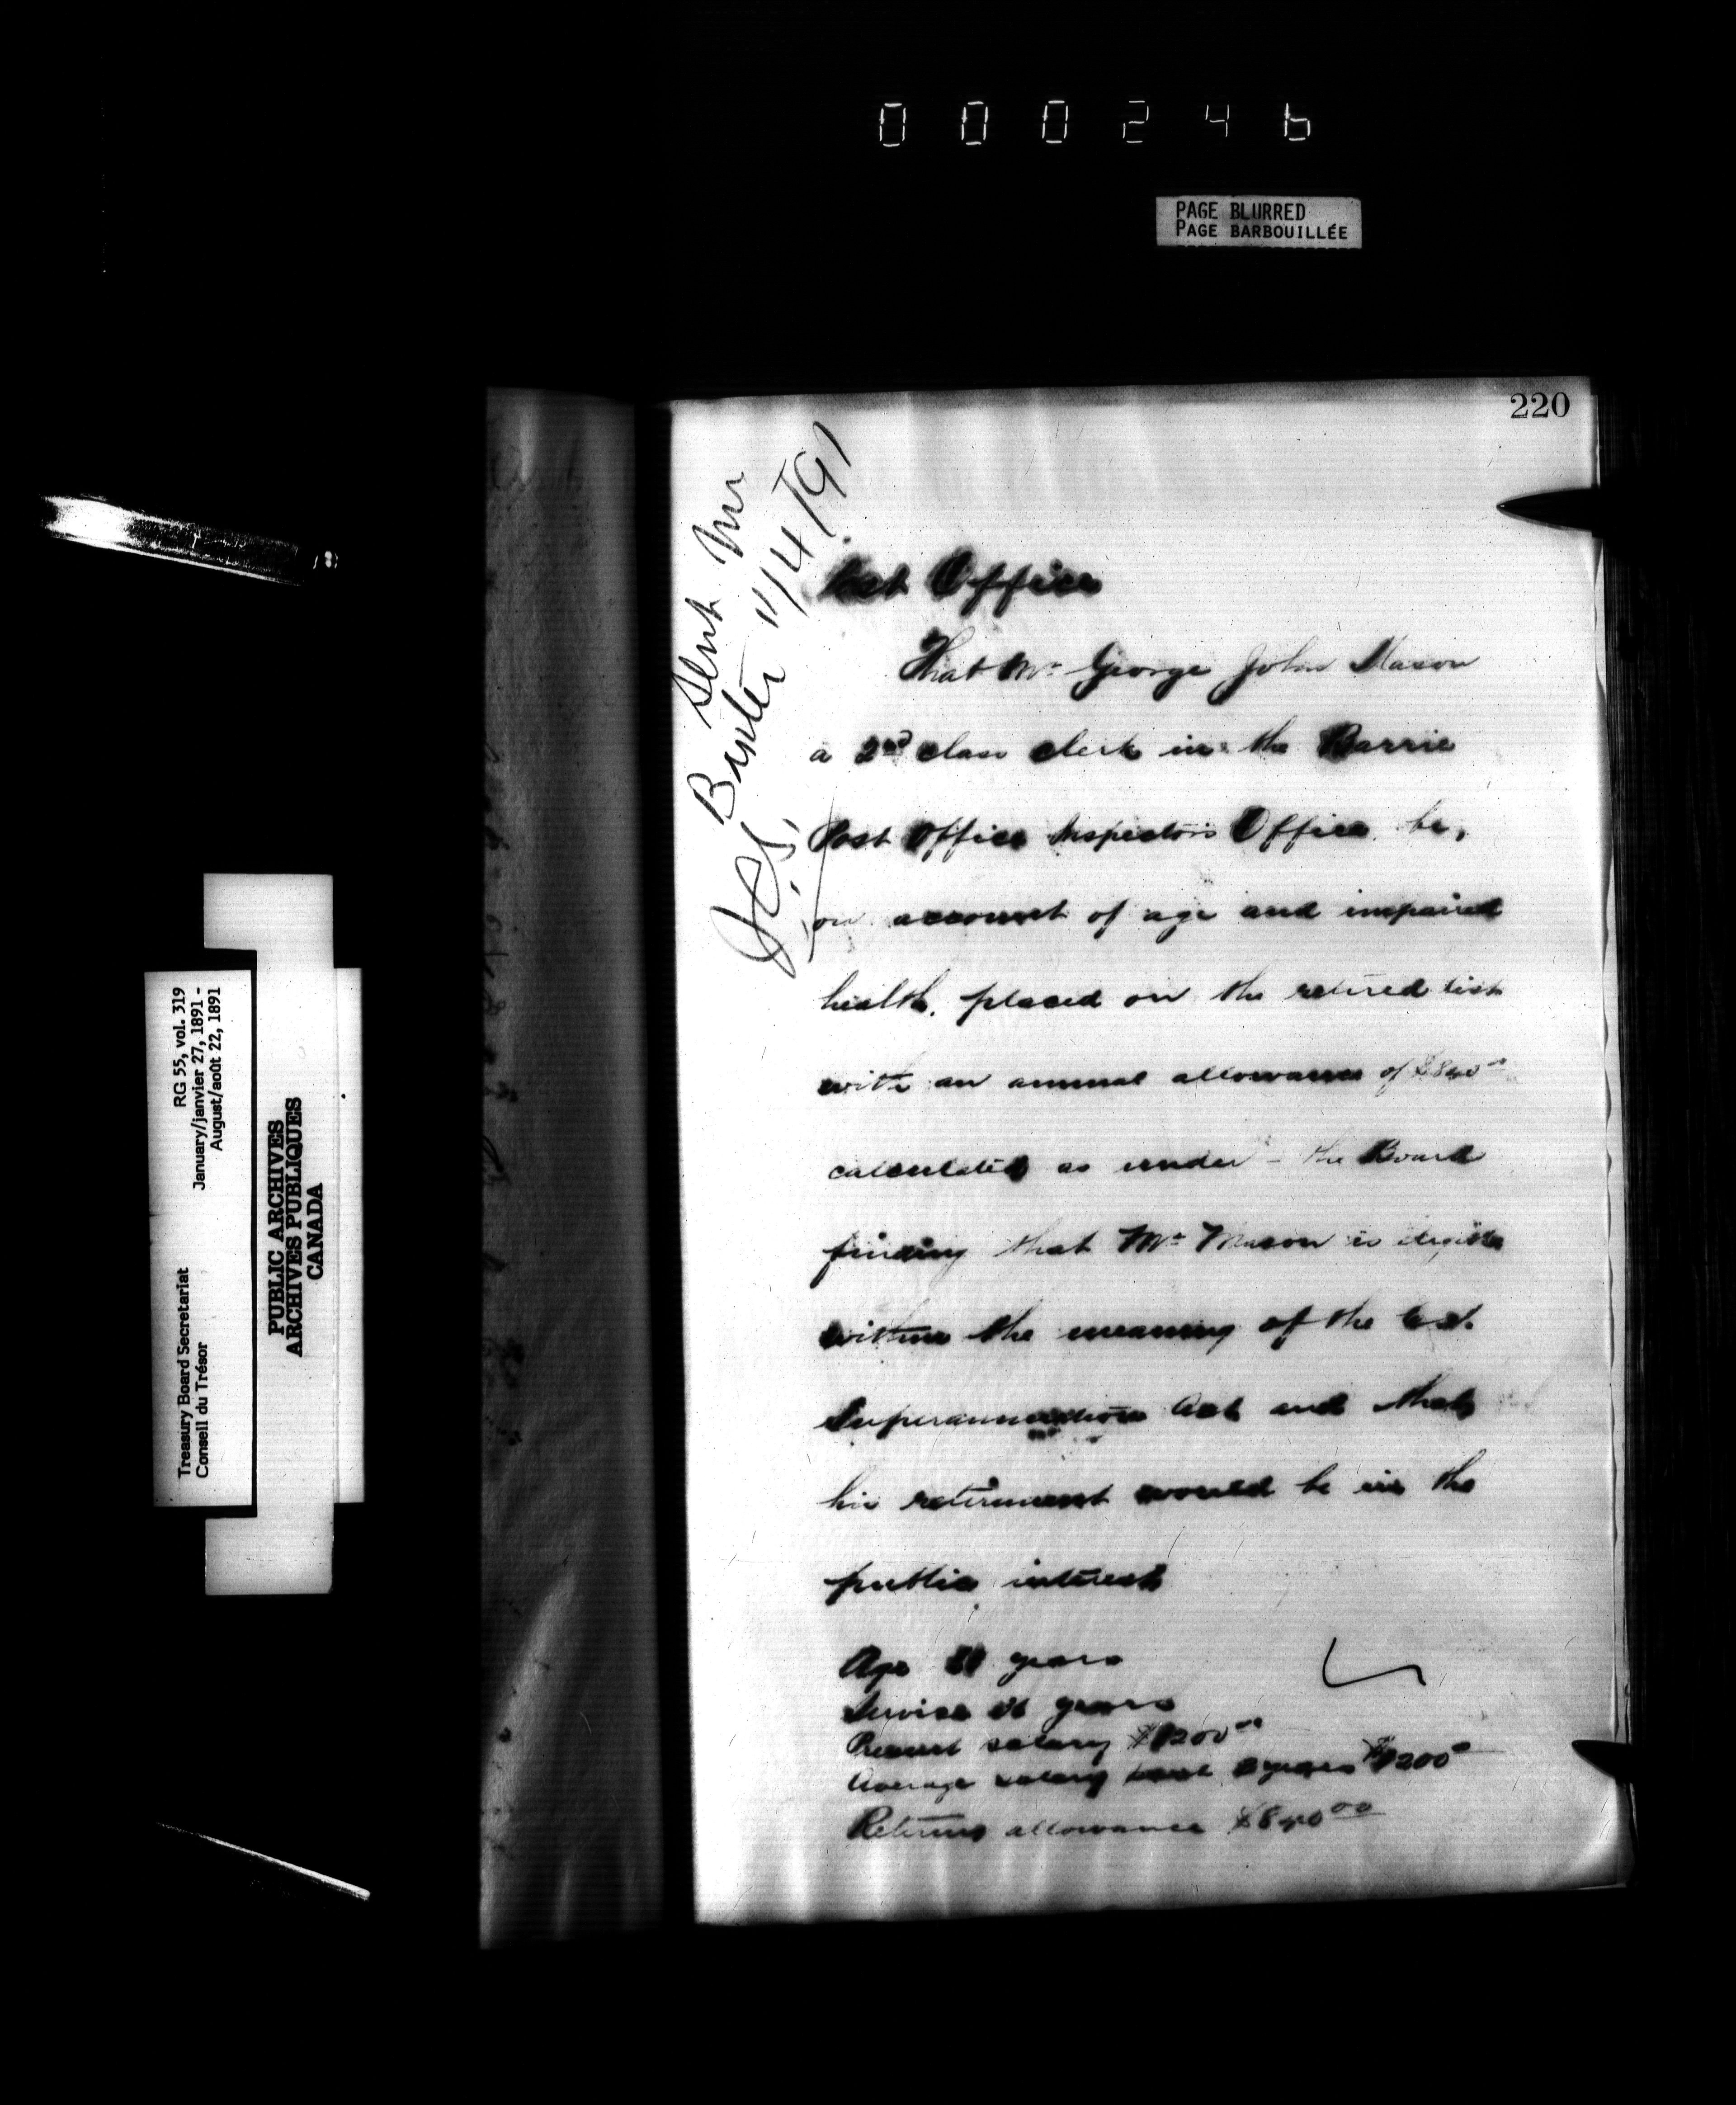 000246
PAGE BLURRED
PAGE BARBOUILLÉE
220
Sent Mr
Baxter 11/4/91
Post Office
That Mr George John Mason
a 2nd class clerk in the Barrie
Post Office Inspectors Office be,
on account of age and impaired
health, placed on the retired list
with an annual allowance of $840
calculated as under - the Board
finding that Mr Mason is eligible
within the meaning of the
Superannuation Act and that
his retirement would be in the
public interest
Age years
Service years
Present salary $1200 00
Average salary last 3 years $1200
Retiring allowance $840 00
RG 55, vol. 319
January/janvier 27, 1891 -
August/août 22, 1891
Treasury Board Secretariat
Conseil du Trésor
PUBLIC ARCHIVES
ARCHIVES PUBLIQUES
CANADA